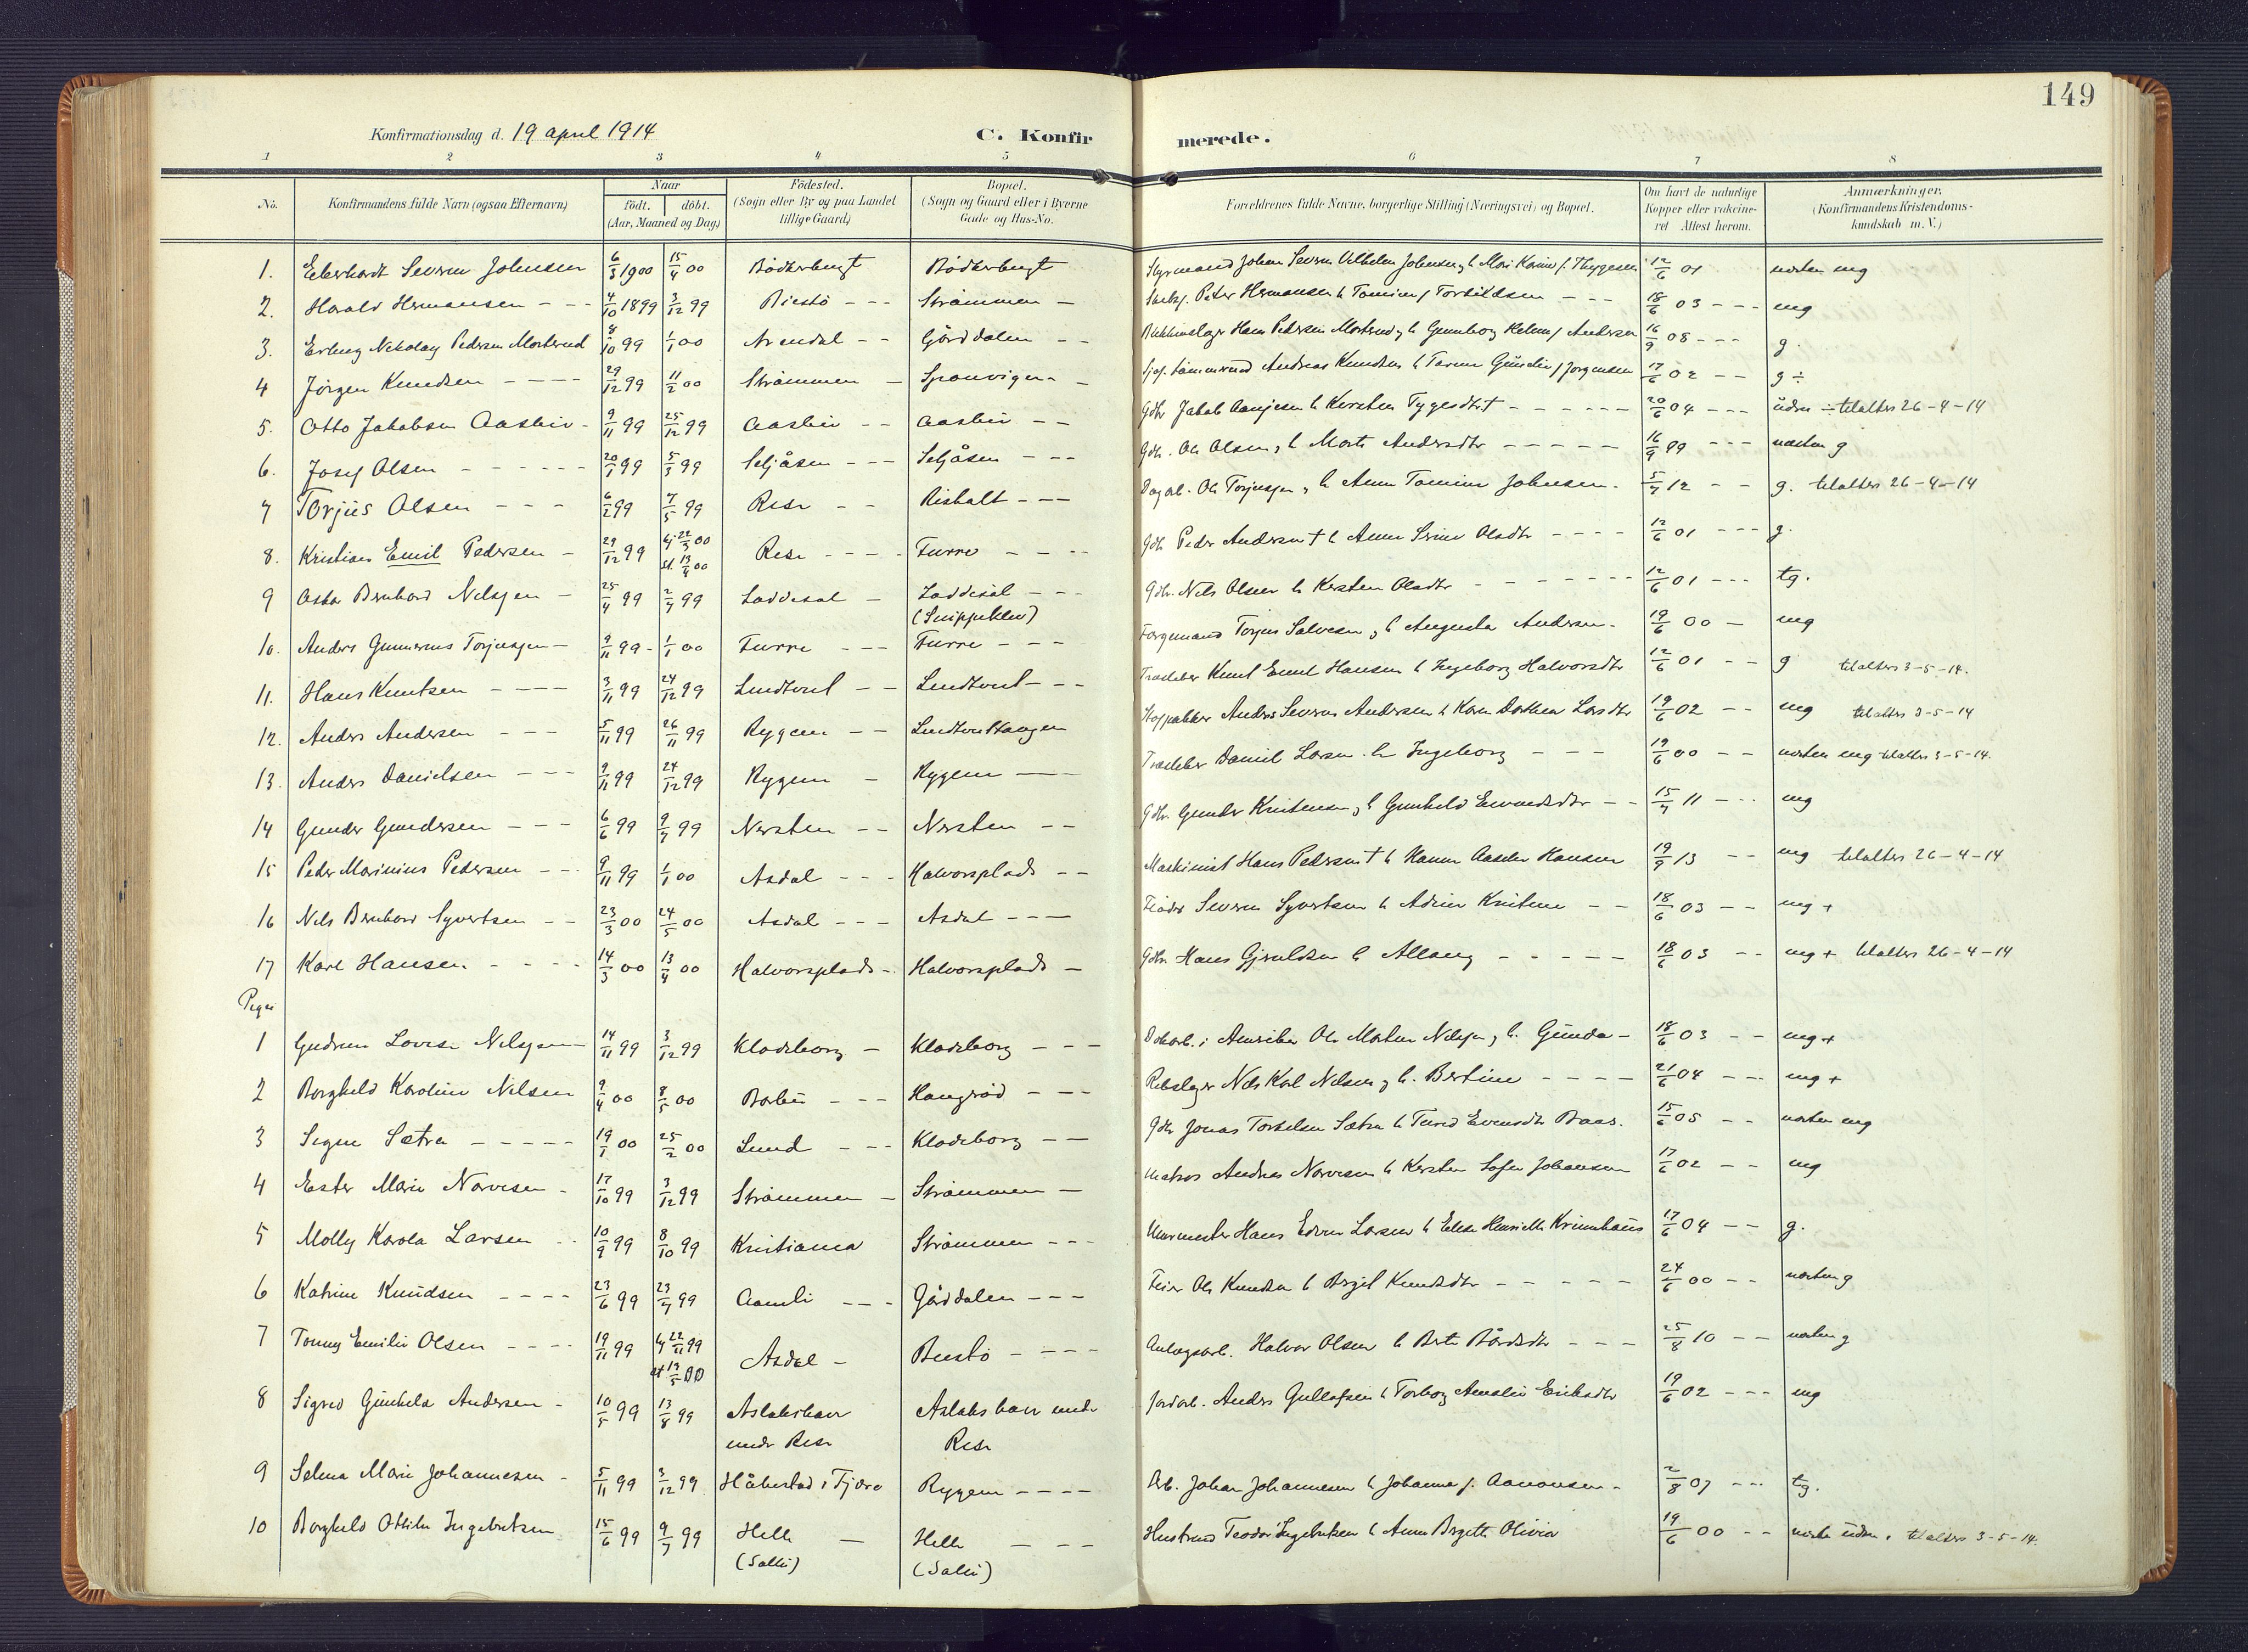 149
Konfirmationsdag d. 19 april 1914
C. Konfirmerede.
1 2 3 4 5 6 7 8
No. Konfirmandens fulde Navn (ogsaa Efternavn) Naar født. døbt. (Aar, Maaned og Dag) Födested. (Sogn eller By og paa Landet tillige Gaard) Bopæl. (Sogn og Gaard eller i Byerne Gade og Hus-No. Forældrenes fulde Navne, borgerlige Stilling (Næringsvei) og Bopæl. Om havt de naturlige Kopper eller vakcineret Attest herom. Anmærkninger. (Konfirmandens Kristendomskundskab m. V.)
1. Eberhardt Severin Johnsen 6/3 1900 15/4 00 Bödkerbugt Bödkerbugt Styrmand Johan Severin Vilhelm Johnsen, h Mari Karine f. Thygesen 12/6 01 næsten mg
2. Harald Hermansen - - 4/10 1899 3/12 99 Biestö - - - Strömmen - Peter Hermansen h Tomine f Torkildsen - - - 18/6 03 - - - mg
3. Erling Nikolay Pedersen Morterud 8/10 99 1/1 00 Arendal - - Gårddalen - - Blikkenslager Hans Pedersen Morterud, h Gunnborg Helene f Andersen 16/9 08 - - - g.
4 Jörgen Knudsen - - - - 29/12 99 11/2 00 Strömmen - Andreas Knudsen h Tarine Gundie f Jorgensen 17/6 02 - - g ÷
5. Otto Jakobsen Aasbie - 9/11 99 25/12 99 Aasbie - - Aasbie - - Gdr Jakob Aanjesen h Kirsten Tygesdtr † - - - - - - 20/6 04 - - - üden ÷ tilalters 26-4-14
6. Josef Olsen - - - - - - 20/1 99 5/3 99 Seljåsen - - - Seljåsen - - - Gdr. Ole Olsen, h Marte Andersdtr - - - - - 16/9 99 - - - næsten g
7 Torjüs Olsen - - - 6/2 99 7/5 99 Rise - - Risholt - - - Dagarb. Ole Torjusen, h Anne Tomine Johnsen. 5/7 12 - - g. tilalters 26-4-14
8. Kristian Emil Pedersen - 29/12 99 hj 22/3 00 st. 13/4 00 Rise - - - - Furre - - - Gdr Peder Andersen † h Anne Serine Olsdtr - - - - 12/6 01 - - - g.
9 Oskar Bernhard Nilsen - 25/4 99 2/7 99 Laddesal - Laddesal - - - Gdr. Nils Olsen h Kirsten Olsdtr - - - - - - - 12/6 01 - - - tg.
(Snippeklev)
10. Anders Gunnerius Torjusen - 9/11 99 - 1/1 00 Furre - - - Furre - - - Torjus Salvesen, h Augusta Andersen. 19/6 00 - mg
11. Hans Knutsen - - - - 3/11 99 24/12 99 Lindtveit - - Lindtveit - - - Knut Emil Hansen h Ingeborg Halvorsdtr 12/6 01 - - g tilalters 3-5-14.
12. Anders Andersen - - - 5/11 99 26/11 99 Rygene - - Anders Severin Andersen h Karen Dorthea Larsdtr 19/6 02 - - mg tilalters 3-5-14
13. Anders Danielsen - - - 9/11 99 24/12 99 Rygene - Rygene - - Daniel Larsen h Ingeborg - - - 19/6 00 - - næsten mg tilalters 3-5-14.
14 Gunder Gundersen - - - 6/6 99 9/7 99 Nersten - - Nersten - - Gdr. Gunder Kristensen, h Gunhild Eivindsdtr - - 15/7 11 - - - mg
15 Peder Marinius Pedersen - - - 9/11 99 1/1 00 Asdal - - - Halvorsplads - - Maskinist Hans Pedersen † h Hanna Aaselie Hansen 19/9 13 - - mg tilalters 26-4-14
16 Nils Bernhard Syvertsen - - 23/3 00 24/5 00 Asdal - - - Asdal - - - Severin Syvertsen h Adine Kristine - - 18/6 03 - - mg +
17 Karl Hansen. - - - - 14/3 00 13/4 00 Halvorsplads -. Halvorsplads - Gdr. Hans Gjeruldsen h Allaug - - - - - 18/6 03 - - mg + tilalters 26-4-14
Piger
1 Gudrun Lovise Nilsen 14/11 99 3/12 99 Kladeborg - Kladeborg - - - i Amerika Ole Morten Nilsen, h. Günda - 18/6 03 - - mg +
2 Borghild Karoline Nilsen 9/4 00 8/5 00 Barbü - - - Haugröd - - - Rebslager Nils Karl Nilsen, h. Bertine - - - - 21/6 04 - - - mg +
3 Signe Sætra - - - - - 19/1 00 25/2 00 Lund - - - Kladeborg - - Gdr Jonas Torkelsen Sætra h Turid Evensdtr Baas. 15/6 05 - - næsten mg
4 Ester Marie Narvesen - 17/10 99 3/12 99 Strömmen - Strömmen - Matros Andreas Narvesen h Kirsten Sofie Johansen 17/6 02 - - mg
5 Molly Karola Larsen - - 10/9 99 8/10 99 Kristiania Strömmen - - - Murmester Hans Edvin Larsen h Henriette 17/6 04 - - g.
6 Katrine Knüdsen - - - - 23/6 99 23/7 99 Aamli - - - Gårddalen - - - Feier Ole Knudsen h Birgit Knudsdtr - - - - - 24/6 00 - - næsten g
7 Tonny Emilie Olsen - - - - 19/11 99 hj 22/11 99 st 13/5 00 Asdal - Biestö - - - - Anlægsarb. Halvor Olsen h Berte Bårdsdtr - - - 25/8 10 - - næsten g
8 Sigrid Günhild Andersen - 10/5 99 13/8 99 Aslakshavn Aslakshavn under Jordarb. Anders Gullofsen h Torborg Amalie Eriksdtr 19/6 02 - - - mg
under Rise Rise
9 Selma Marie Johannesen - 5/11 99 3/12 99 Håbestad i Fjære Rygene - - - - Arb. Johan Johannesen h Johanne f. Aanonsen - 2/8 07 - - - tg.
10 Borghild Ottilie Ingebretsen 15/6 99 9/7 99 Helle - Helle - - - Teodor Ingebretsen h Anne Birgitte Olivia 19/6 00 - - næsten üden. tilalters 3-5-14.
(Salli) (Salli)